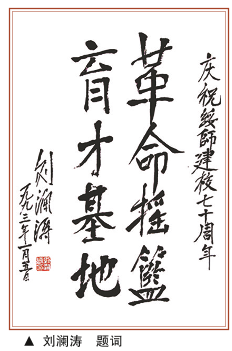 庆祝绥师建校七十周年
革命摇篮
育才基地
刘澜涛
一九九三年一月五日
▲ 刘澜涛 题词